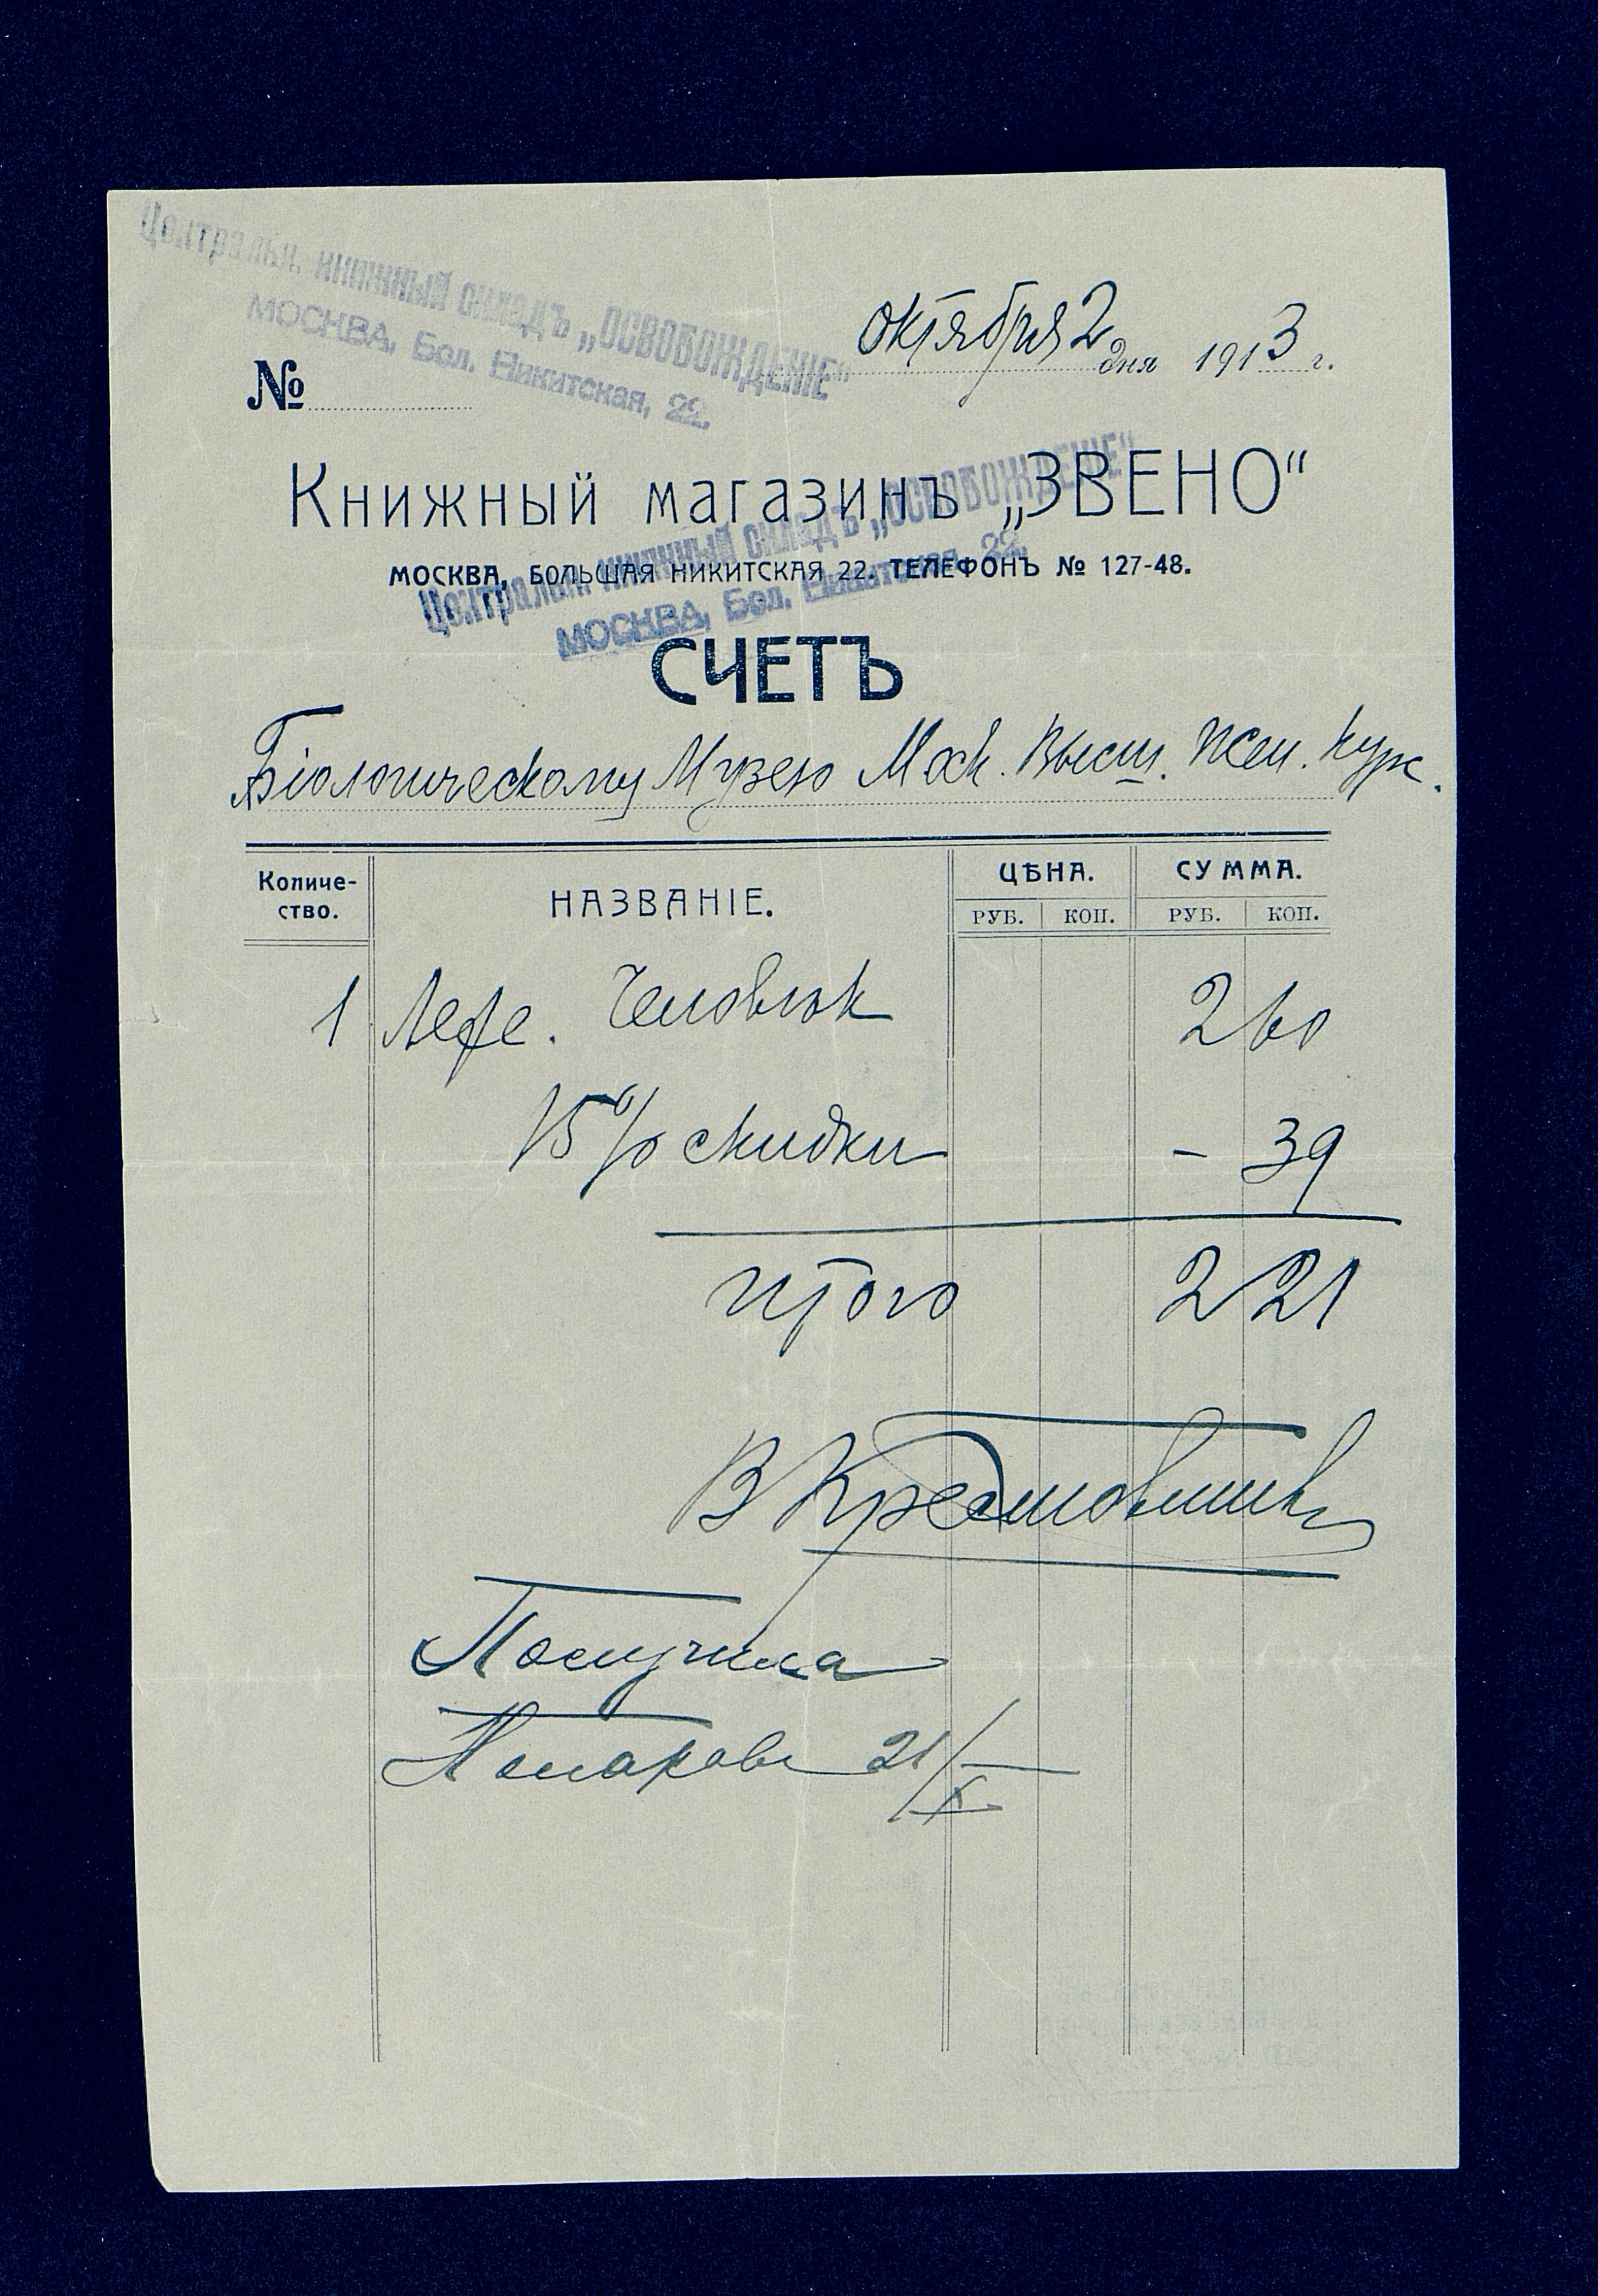 Центральн. книжный складъ „ОСВОБОЖДЕНІЕ“
МОСКВА, Бол. Никитская, 22.
октября 2 дня 1913 г.
№
Книжный магазинъ „ЗВЕНО“
Центральн. книжный складъ „ОСВОБОЖДЕНІЕ“
МОСКВА, БОЛЬШАЯ НИКИТСКАЯ 22. ТЕЛЕФОНЪ № 127-48.
МОСКВА, Бол. Никитская, 22.
СЧЕТЪ
Біологическому Музею Моск. Высш. Жен. Курс.
Количе- НАЗВАНІЕ. ЦѢНА. СУММА.
ство. РУБ. КОП. РУБ. КОП.
1 Человѣк 2 60
15% скидки - 39
Итого 2 21
В
Получила
21/X